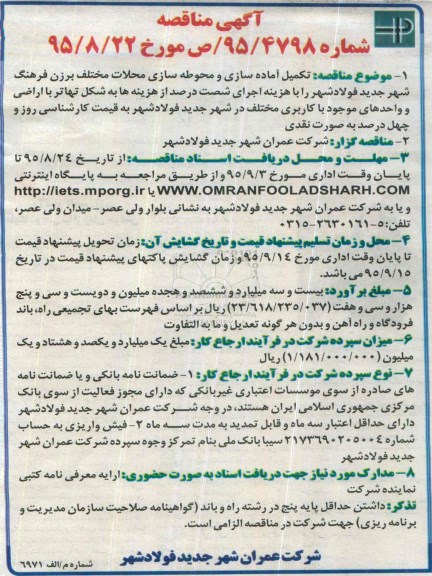 آگهی مناقصه
شماره ۹۵/۴۷۹۸/ص مورخ ۹۵/۸/۲۲
۱- موضوع مناقصه: تکمیل آماده سازی و محوطه سازی محلات مختلف برزن فرهنگ
شهر جدید فولادشهر را با هزینه اجرای شصت درصد از هزینه ها به شکل تهاتر با اراضی
و واحدهای موجود با کاربری مختلف در شهر جدید فولادشهر به قیمت کارشناسی روز و
چهل درصد به صورت نقدی
۲- مناقصه گزار: شرکت عمران شهر جدید فولادشهر
۳- مهلت و محل دریافت اسناد مناقصه: از تاریخ ۹۵/۸/۲۴ تا
پایان وقت اداری مورخ ۹۵/۹/۳ و از طریق مراجعه به پایگاه اینترنتی
WWW.OMRANFOOLADSHARH.COM یا http://iets.mporg.ir
و یا به شرکت عمران شهر جدید فولادشهر به نشانی بلوار ولی عصر- میدان ولی عصر،
تلفن: ۵-۲۶۳۰۱۶۱-۰۳۱۵
۴- محل و زمان تسلیم پیشنهاد قیمت و تاریخ گشایش آن: زمان تحویل پیشنهاد قیمت
تا پایان وقت اداری مورخ ۹۵/۹/۱۴ و زمان گشایش پاکتهای پیشنهاد قیمت در تاریخ
۹۵/۹/۱۵ می باشد.
۵- مبلغ برآورد: بیست و سه میلیارد و ششصد و هجده میلیون و دویست و سی و پنج
هزار و سی و هفت (۲۳/۶۱۸/۲۳۵/۰۳۷) ریال بر اساس فهرست بهای تجمیعی راه، باند
فرودگاه و راه آهن و بدون هر گونه تعدیل و ما به التفاوت
۶- میزان سپرده شرکت در فرآیند ارجاع کار: مبلغ یک میلیارد و یکصد و هشتاد و یک
میلیون (۱/۱۸۱/۰۰۰/۰۰۰) ریال
۷- نوع سپرده شرکت در فرآیند ارجاع کار: ۱- ضمانت نامه بانکی و یا ضمانت نامه
های صادره از سوی موسسات اعتباری غیربانکی که دارای مجوز فعالیت از سوی بانک
مرکزی جمهوری اسلامی ایران هستند، در وجه شرکت عمران شهر جدید فولادشهر
دارای حداقل اعتبار سه ماه و قابل تمدید به مدت سه ماه ۲- فیش واریزی به حساب
شماره ۲۱۷۳۶۹۰۲۰۵۰۰۴ سیبا بانک ملی بنام تمرکز وجوه سپرده شرکت عمران شهر
جدید فولادشهر
۸- مدارک مورد نیاز جهت دریافت اسناد به صورت حضوری: ارایه معرفی نامه کتبی
نماینده شرکت
تذکر: داشتن حداقل پایه پنج در رشته راه و باند (گواهینامه صلاحیت سازمان مدیریت و
برنامه ریزی) جهت شرکت در مناقصه الزامی است.
شرکت عمران شهر جدید فولادشهر
شماره م/الف ۶۹۷۱